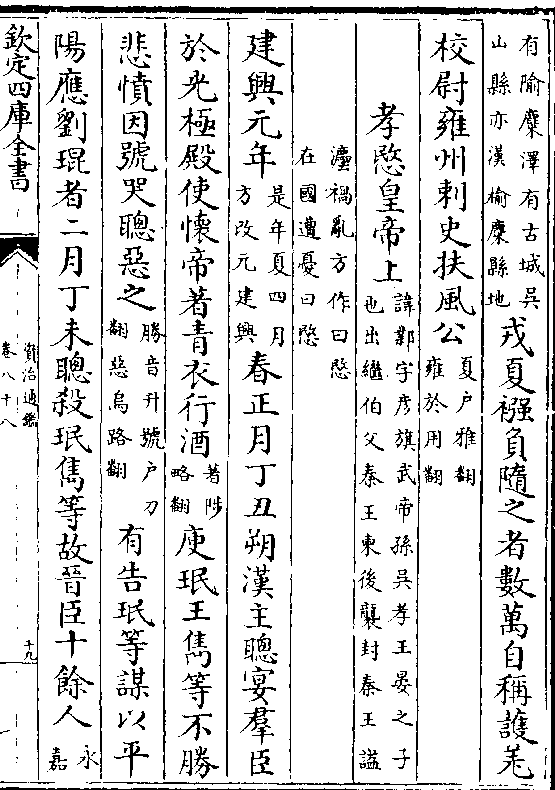 有隃麋澤有古城吳山縣亦漢榆麋縣地戎夏襁負隨之者數萬自稱護羌
校尉雍州刺史扶風公夏户雅翻雍於用翻
孝愍皇帝上諱鄴字彦旗武帝孫吳孝王晏之子也出繼伯父秦王東後襲封秦王諡
法禍亂方作曰愍在國遭憂曰愍
建興元年是年夏四月方改元建興春正月丁丑朔漢主聰宴羣臣
於光極殿使懷帝著青衣行酒著陟略翻庾珉王雋等不勝
悲憤因號哭聰惡之勝音升號户刀翻惡烏路翻有告珉等謀以平
陽應劉琨者二月丁未聰殺珉雋等故晉臣十餘人永嘉
欽定四庫全書
資治通鑑
卷八十八
十九